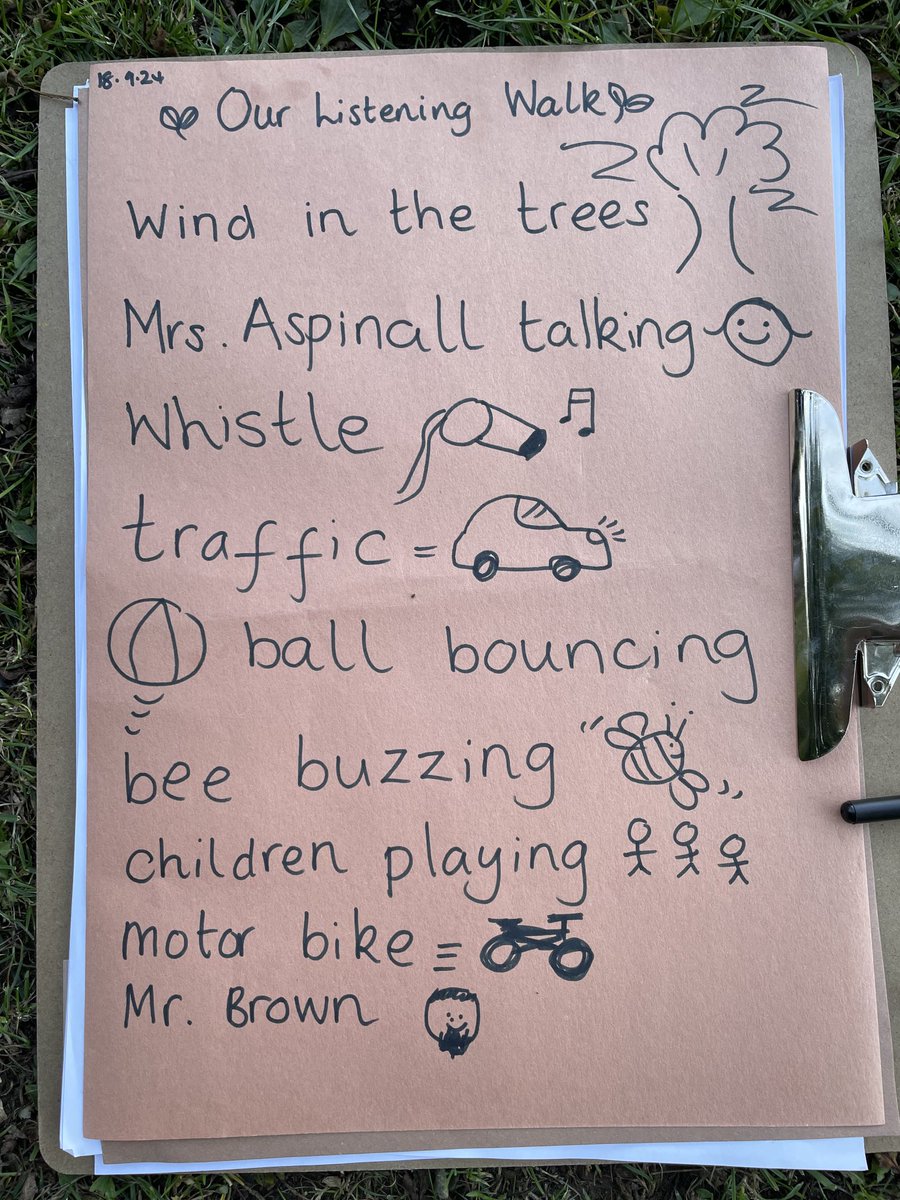 18.9.24
Our Listening Walk
Wind in the trees
Mrs. Aspinall talking
Whistle
traffic
ball bouncing
bee buzzing
children playing
motor bike
Mr. Brown